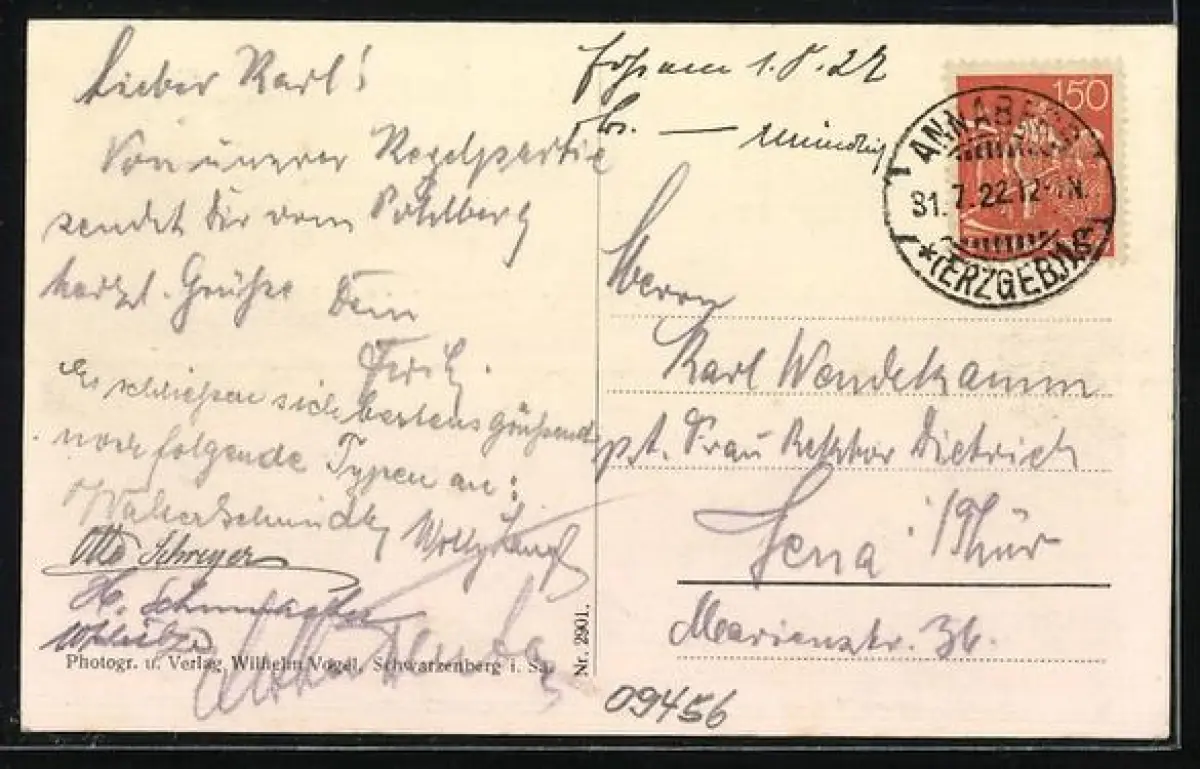 Lieber Karl!
Von unserer Kegelpartie
sendet Dir vom Pöhlberg
herzl. Grüsse Dein
Fritz.
Es schließen sich bestens grüßend
noch folgende Typen an:
Walter
Otto Schreyer
H.
Photogr. u. Verlag Wilhelm Vogel, Schwarzenberg i. Sa.
Nr. 2901.
1.8.22
mündlich
150
ANNABERG
31.7.22 12-1N.
*(ERZGEB.)
Herrn
Karl Wendekamm
p.A. Frau Rektor Dietrich
Jena /Thür
Marienstr. 36.
09456